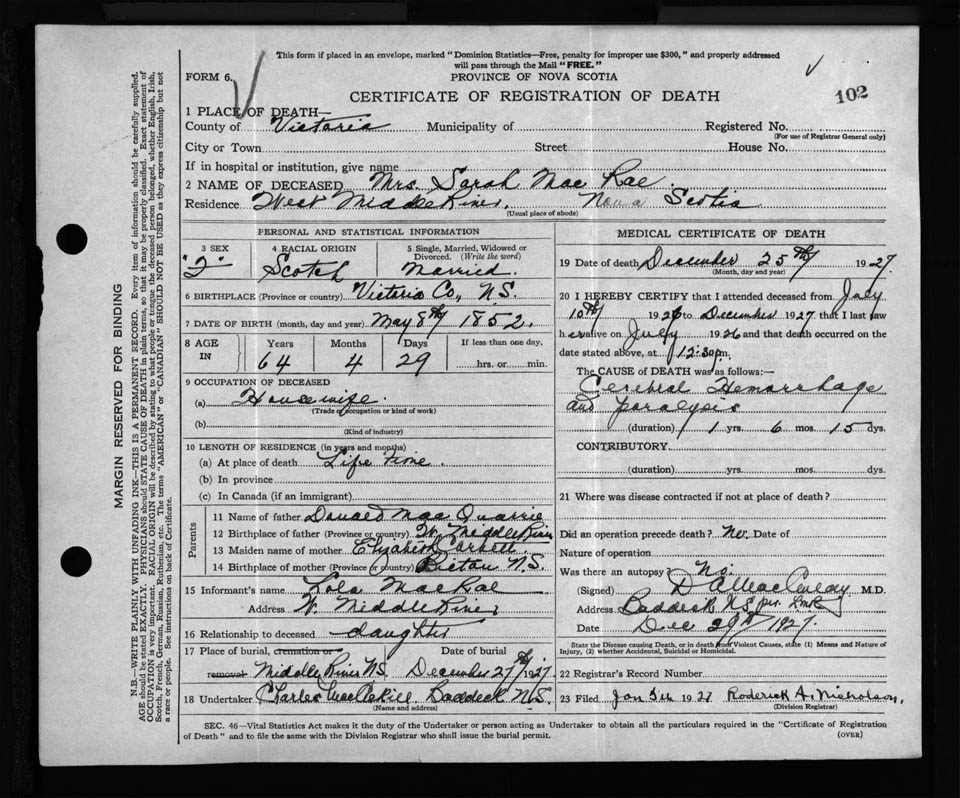 This form if placed in an envelope, marked "Dominion Statistics—Free, penalty for improper use $300," and properly addressed
will pass through the Mail "FREE."
FORM 6.
PROVINCE OF NOVA SCOTIA
CERTIFICATE OF REGISTRATION OF DEATH
102
1 PLACE OF DEATH—
County of Victoria Municipality of Registered No.
(For use of Registrar General only)
City or Town Street House No.
If in hospital or institution, give name
2 NAME OF DECEASED Mrs. Sarah Mac Rae
Residence West Middle River, Nova Scotia
(Usual place of abode)
PERSONAL AND STATISTICAL INFORMATION
3 SEX 4 RACIAL ORIGIN 5 Single, Married, Widowed or Divorced. (Write the word)
Scotch Married.
6 BIRTHPLACE (Province or country) Victoria Co., N.S.
7 DATE OF BIRTH (month, day and year) May 8th 1852.
8 AGE IN Years Months Days If less than one day,
64 4 29 hrs. or min.
9 OCCUPATION OF DECEASED
(a) Housewife.
(Trade or occupation or kind of work)
(b)
(Kind of industry)
10 LENGTH OF RESIDENCE (in years and months)
(a) At place of death Life time
(b) In province
(c) In Canada (if an immigrant)
Parents
11 Name of father Donald Mac Quarrie
12 Birthplace of father (Province or country) W. Middle River
13 Maiden name of mother Elizabeth
14 Birthplace of mother (Province or country) Pictou N.S.
15 Informant's name Lola MacRae
Address W. Middle River
16 Relationship to deceased daughter
17 Place of burial, cremation or removal Date of burial
Middle River N.S. December 27th 1927.
18 Undertaker Charles MacAskill Baddeck N.S.
(Name and address)
MEDICAL CERTIFICATE OF DEATH
19 Date of death December 25th 1927.
(Month, day and year)
20 I HEREBY CERTIFY that I attended deceased from July
10th 1926 to December 1927 that I last saw
her alive on July 1926 and that death occurred on
date stated above, at 12:30 pm.
The CAUSE OF DEATH was as follows:—
Cerebral Hemorrhage
and paralysis
(duration) 1 yrs. 6 mos. 15 dys.
CONTRIBUTORY.
(duration) yrs. mos. dys.
21 Where was disease contracted if not at place of death?
Did an operation precede death? No. Date of
Nature of operation
Was there an autopsy? No.
(Signed) M.D.
Address Baddeck N.S. per
Date Dec 29th 1927.
State the Disease causing Death, or in death from Violent Causes, state (1) Means and Nature of Injury, (2) whether Accidental, Suicidal or Homicidal.
22 Registrar's Record Number
23 Filed Jan 19 Roderick A. Nicholson,
(Division Registrar)
SEC. 46—Vital Statistics Act makes it the duty of the Undertaker or person acting as Undertaker to obtain all the particulars required in the "Certificate of Registration
of Death" and to file the same with the Division Registrar who shall issue the burial permit.
(OVER)
MARGIN RESERVED FOR BINDING
N.B.—WRITE PLAINLY WITH UNFADING INK—THIS IS A PERMANENT RECORD. Every item of information should be carefully supplied.
AGE should be stated EXACTLY. PHYSICIANS should STATE CAUSE OF DEATH in plain terms, so that it may be properly classified. Exact statement of
OCCUPATION is very important. RACIAL ORIGIN will be described by stating to what people or tongue the deceased person belonged, whether English, Irish,
Scotch, French, German, Russian, Ruthenian, etc. The terms "AMERICAN" or "CANADIAN" SHOULD NOT BE USED as they express citizenship but not
a race or people. See instructions on back of Certificate.